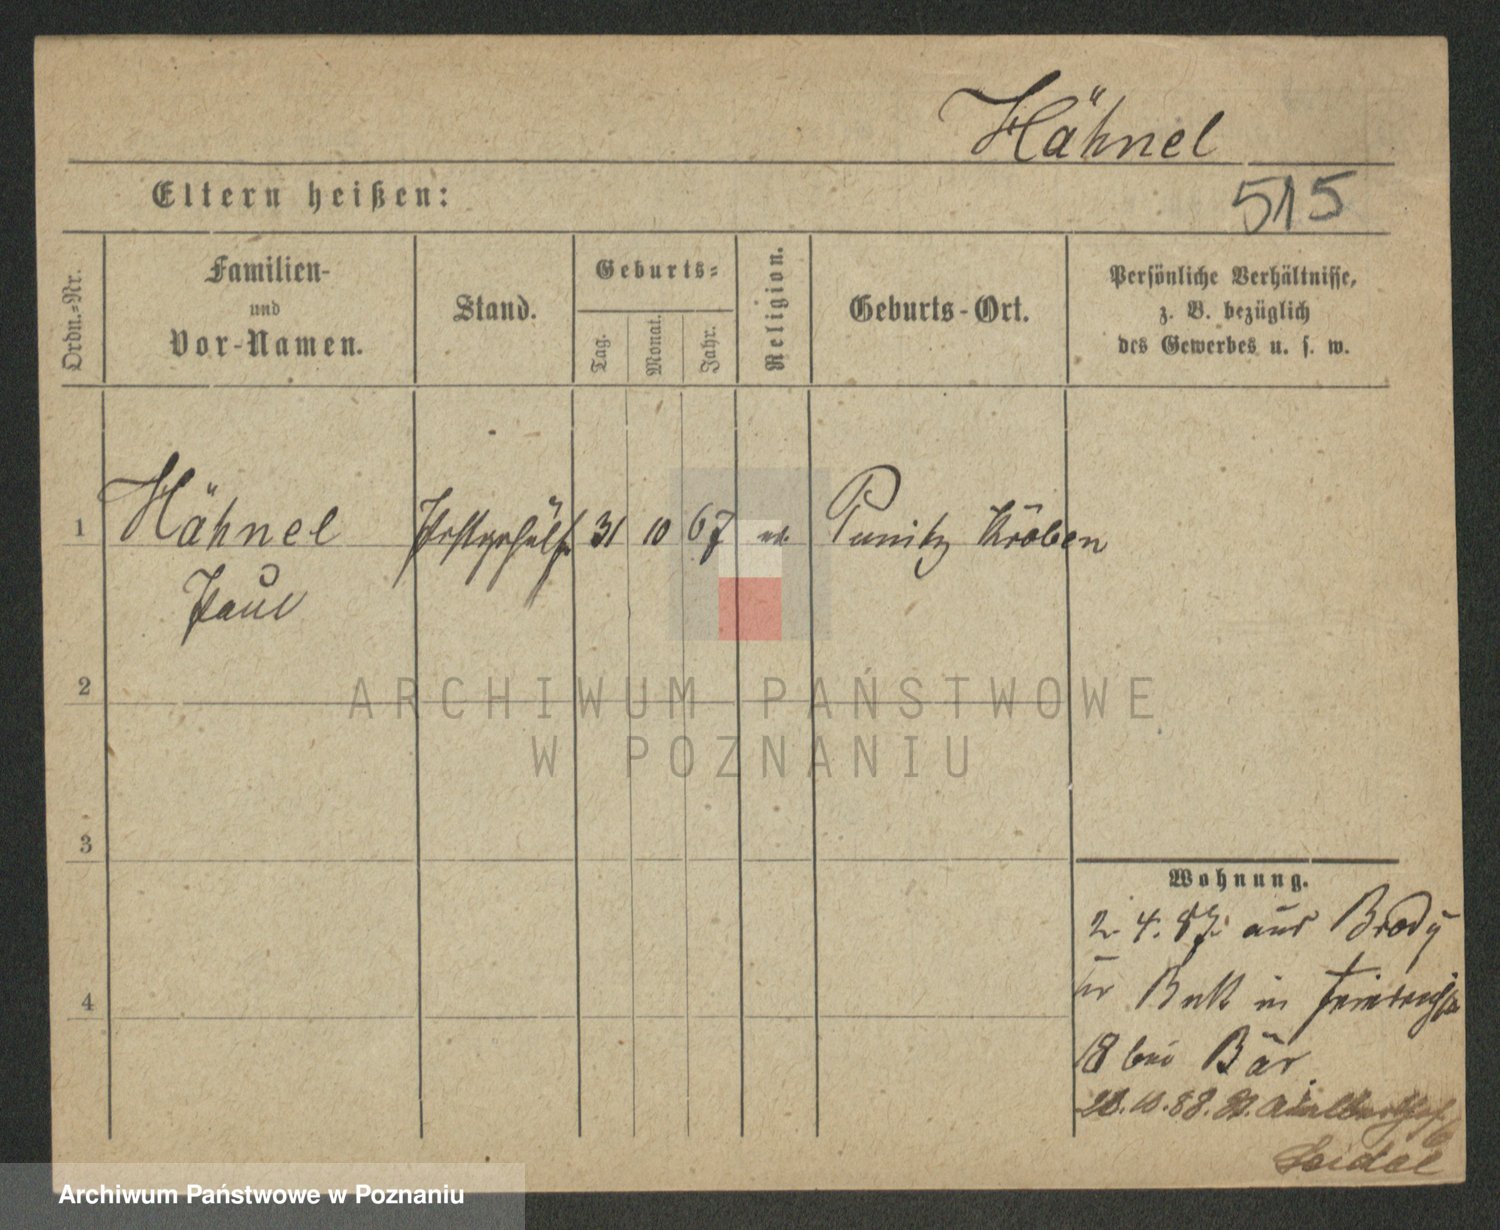 Hähnel
515
Eltern heißen:
Ordn.-Nr.
Familien-
und
Vor-Namen.
Stand.
Geburts-
Tag.
Monat.
Jahr.
Religion.
Geburts-Ort.
Persönliche Verhältnisse,
z. B. bezüglich
des Gewerbes u. s. w.
1 Hähnel Postgehülfe 31 10 67 ev. Punitz Kröben
Paul
2
ARCHIWUM PAŃSTWOWE
W POZNANIU
3
4
Wohnung.
2. 4. 87. aus Brody
Kr Buk in
18 bei Bär.
10. 88.
Seidel
Archiwum Państwowe w Poznaniu